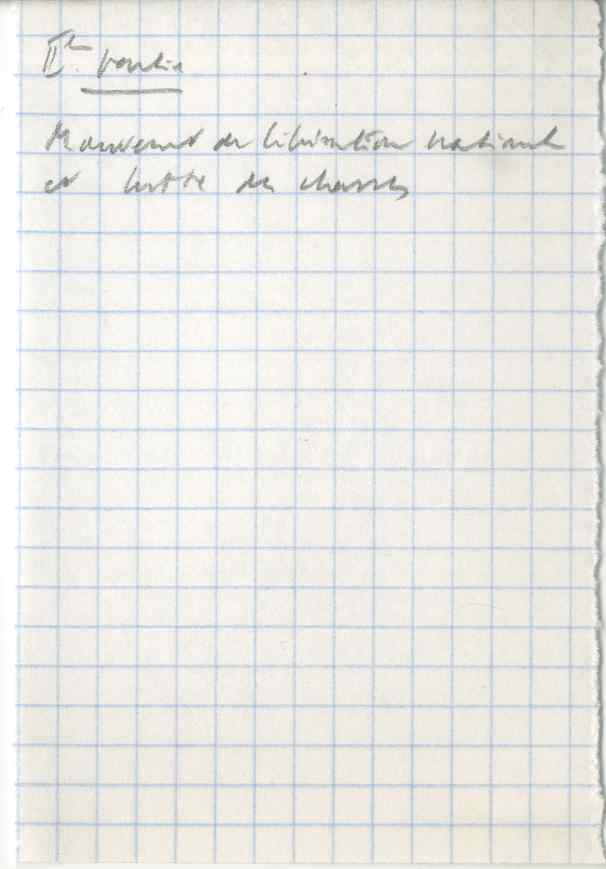 IIe partie
Mouvement de libération nationale
et lutte des classes